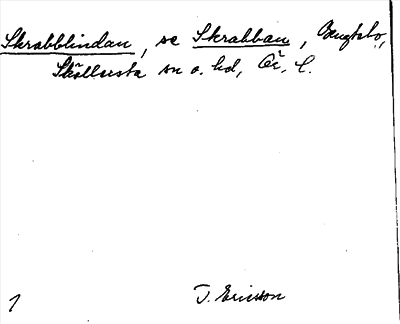 Skrabblindan, se Skrabban, Bengtsbo,
Skällersta sn o. hd, Ör. l.
T. Ericsson
1